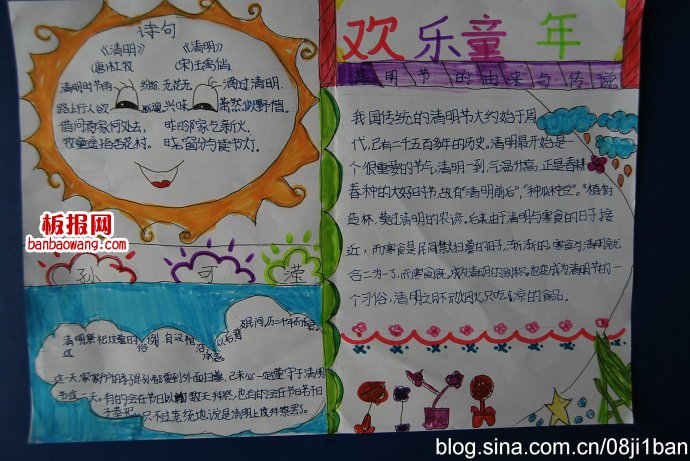 诗句
《清明》
(唐)杜牧
清明时节雨纷纷
路上行人欲断魂
借问酒家何处去,
牧童遥指杏花村。
《清明》
(宋)王禹偁
无花无酒过清明
兴味萧然似野僧
昨日邻家乞新火,
晓窗分与读书灯。
板报网
banbaowang.com
孙 可 滢
清明祭祀坟茔的
这一天,家家户户
清明
节这一天。有的会在节日以
不过笼统地说是清明上坟祭祭。
欢乐童年
清明节的由来与传说
我国传统的清明节大约始于周
代,已有二千五百多年的历史。清明最开始是一
个很重要的节气,清明一到,气温升高,正是春耕
春种的大好时节,故有"清明前后",“种瓜种豆”。“植树
造林,莫过清明的农谚。后来由于清明与寒食的日子接
近,而寒食是民间禁火扫墓的日子,渐渐的,寒食与清明就
合二为一了,而寒食既成为清明的别称,也变成为清明节的一
个习俗,清明之日不动烟火,只吃凉的食品。
LOVE
blog.sina.com.cn/08ji1ban